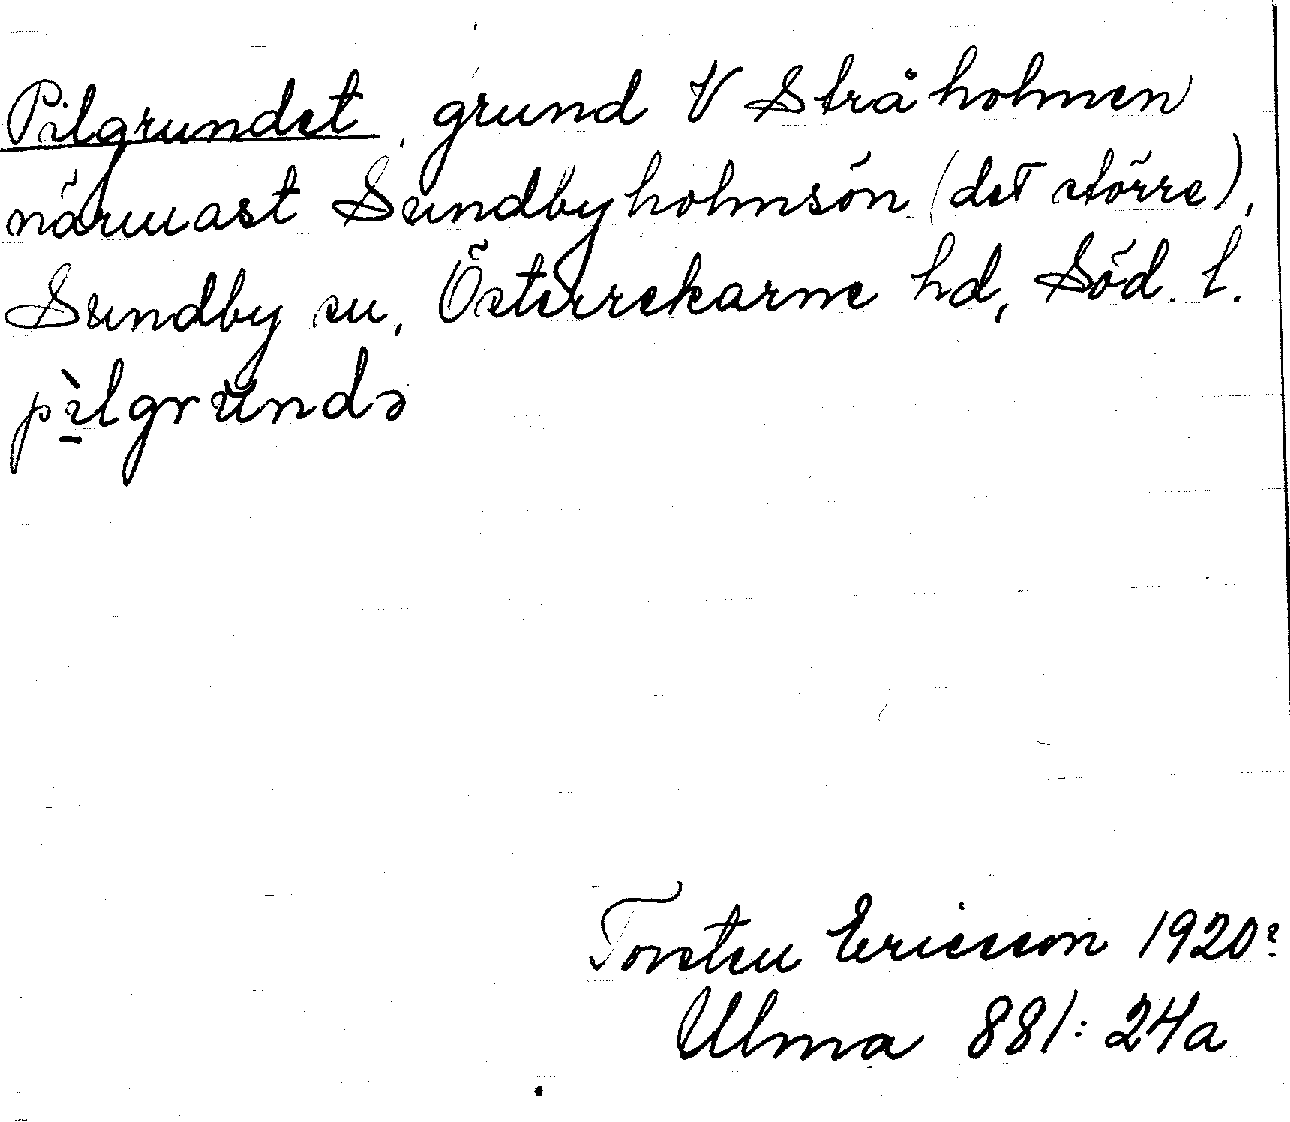 Pilgrundet, grund V Stråholmen
närmast Sundbyholmsön (det större),
Sundby sn, Österrekarne hd, Söd. l.
pìlgrundə
Torsten Ericsson 1920?
Ulma 881:24a